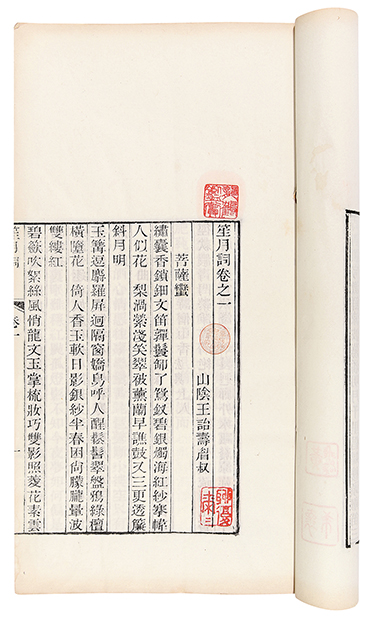 笙月詞卷之一
山陰王詒壽眉叔
菩薩蠻
繡囊香鎖細文笛嚲鬟師了鴛釵碧銀燭海紅紗寒幃
人似花 梨渦縈淺笑翠被薰蘭早譙鼓又三更透簾
斜月明
玉篝逗麝羅屏迥隔窗嬌鳥呼人醒鬆髻翠盤鴉綠檀
橫墮花 倚人香玉軟日影銀紗半春困尚朦朧暈波
雙縷紅
碧歛吹絮絲風悄龍文玉掌梳妝巧雙影照菱花素雲
笙月詞
卷一
一